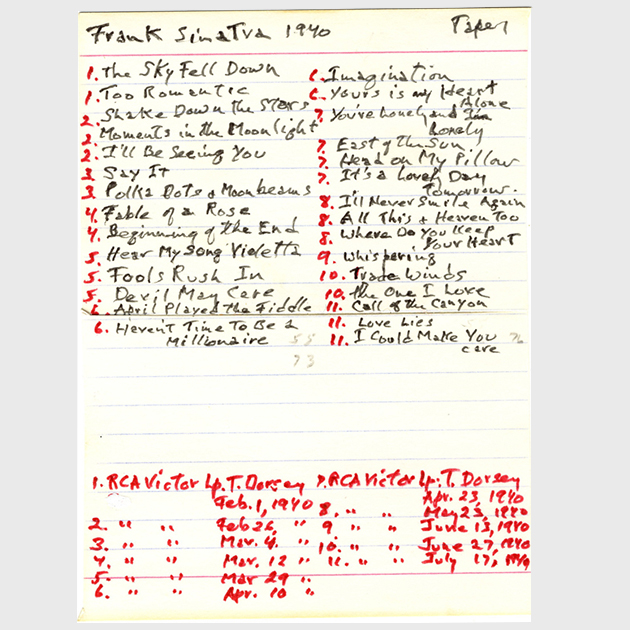 Frank Sinatra 1940 Tape 1
1. The Sky Fell Down
1. Too Romantic
2. Shake Down the Stars
2. Moments in the Moonlight
2. I'll Be Seeing You
3. Say It
3. Polka Dots + Moonbeams
4. Fable of a Rose
4. Beginning of the End
5. Hear My Song Violetta
5. Fools Rush In
5. Devil May Care
6. April Played the Fiddle
6. Haven't Time To Be a
Millionaire
6. Imagination
6. Yours is my Heart
Alone
7. You're Lonely and I'm
Lonely
7. East of the Sun
7. Head on My Pillow
7. It's a Lovely Day
Tomorrow.
8. I'll Never Smile Again
8. All This + Heaven Too
8. Where Do You Keep
Your Heart
9. Whispering
10. Trade Winds
10. The One I Love
11. Call of the Canyon
11. Love Lies
11. I Could Make You
care
55
73
76
1. RCA Victor Lp. T. Dorsey
Feb. 1, 1940
2. " " Feb 26, "
3. " " Mar. 4. "
4. " " Mar. 12 "
5. " " Mar 29 "
6. " " Apr. 10 "
7. RCA Victor Lp. T. Dorsey
Apr. 23, 1940
8. " " May 23, 1940
9 " " June 13, 1940
10. " " June 27, 1940
11. " " July 17, 1940